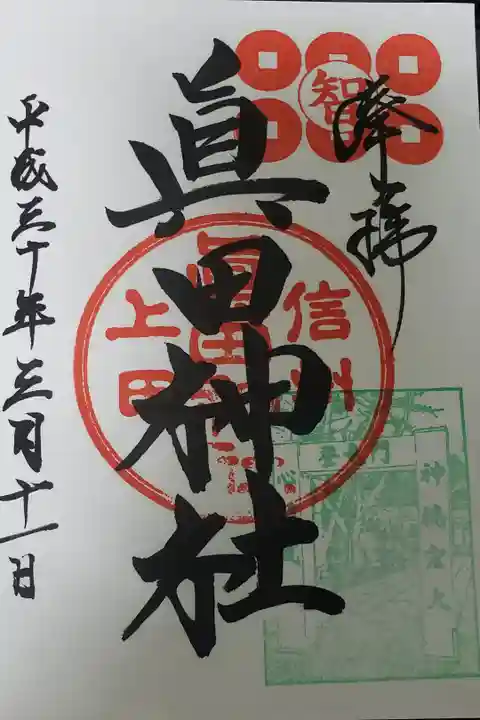 奉拝
智
眞田神社
信州
上田
眞田神社
平成三十年三月十一日